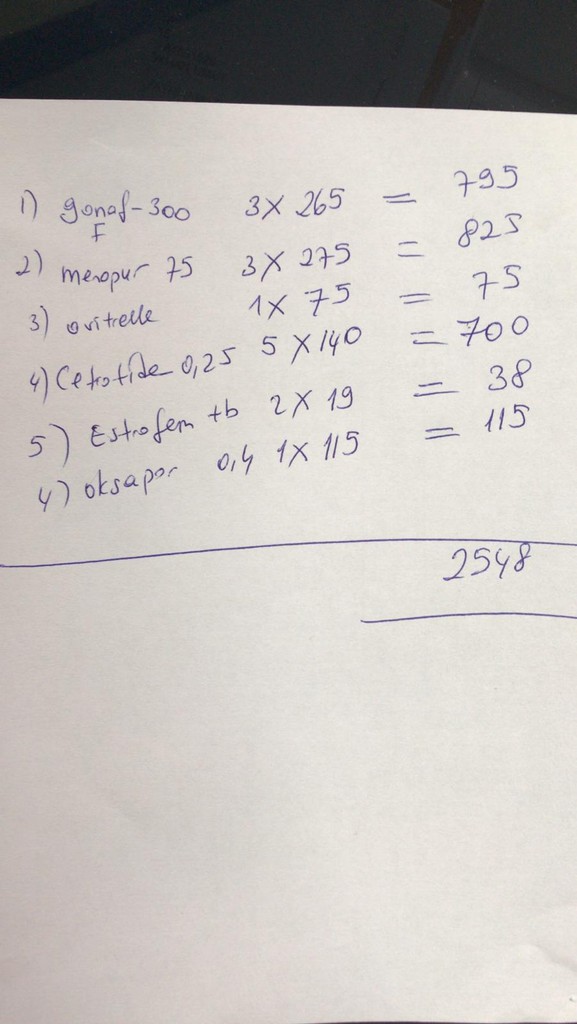 1) gonaf-300 3X 265 = 795
F
2) menopur 75 3X 275 = 825
3) ovitrelle 1X 75 = 75
4) Cetrotide 0,25 5 X 140 = 700
5) Estrofem tb 2X 19 = 38
4) oksapar 0,4 1X 115 = 115
2548